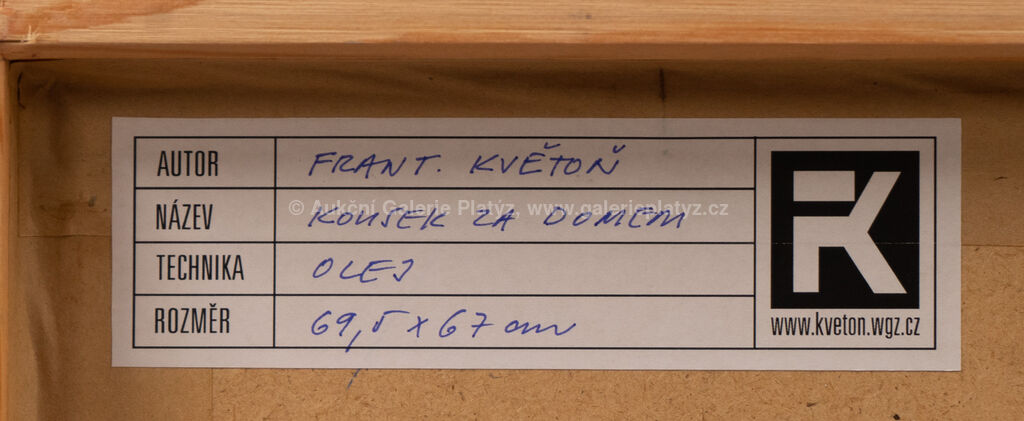 AUTOR FRANT. KVĚTOŇ
NÁZEV KOUSEK ZA DOMEM
© Aukční Galerie Platýz, www.galerieplatyz.cz
TECHNIKA OLEJ
ROZMĚR 69,5 x 67 cm
FK
www.kveton.wgz.cz